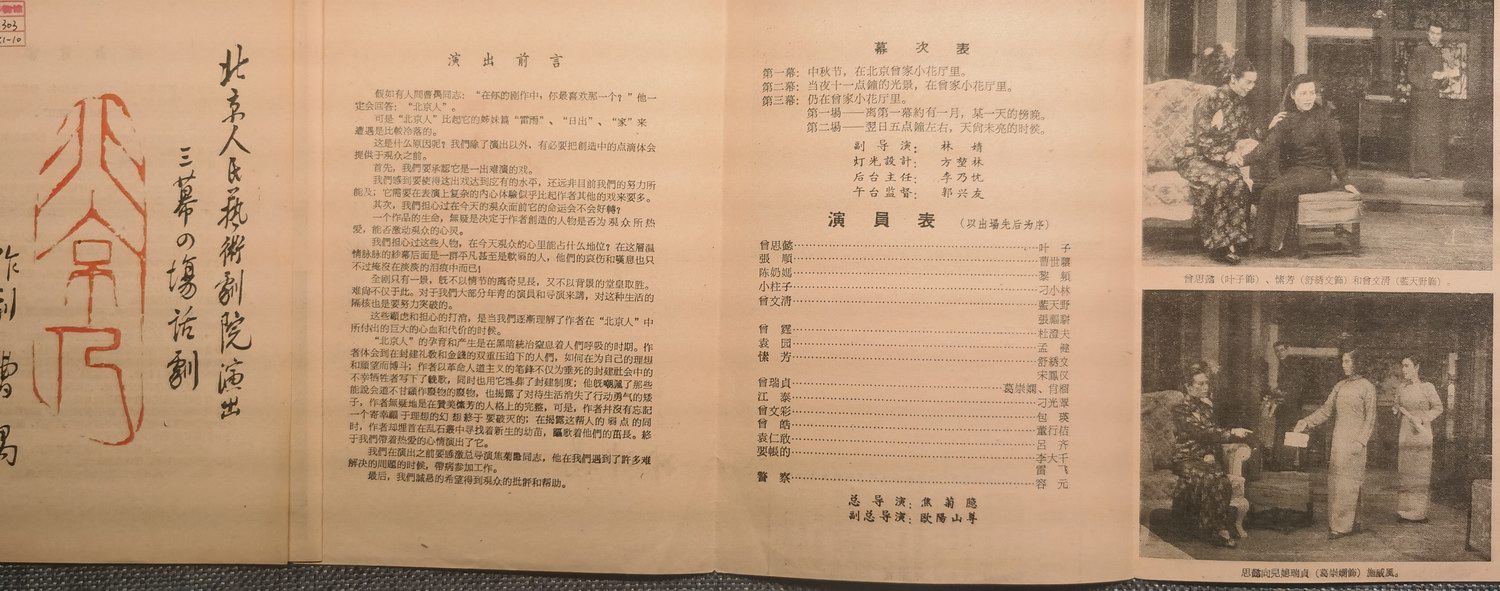 303
北京人民藝術劇院演出
三幕の場話劇
作劇 曹禺
演出前言
假如有人問曹禺同志:“在你的剧作中,你最喜欢那一个?”他一
定会回答:“北京人”。
可是“北京人”比起它的姊妹篇“雷雨”、“日出”、“家”来
遭遇是比較冷落的。
这是什么原因呢?我們除了演出以外,有必要把創造中的点滴体会
提供于观众之前。
首先,我們要承認它是一出难演的戏。
我們感到要使得这出戏达到应有的水平,还远非目前我們的努力所
能及;它需要在表演上复杂的内心体驗似乎比起作者其他的戏来要多。
其次,我們担心过在今天的观众面前它的命运会不会好轉?
一个作品的生命,無疑是决定于作者創造的人物是否为观众所热
爱,能否激动观众的心灵。
我們担心过这些人物,在今天观众的心里能占什么地位?在这層温
情脉脉的紗幕后面是一群平凡甚至是軟弱的人,他們的哀伤和嘆息也只
不过掩沒在淡淡的泪痕中而已!
全剧只有一景,既不以情节的离奇见長,又不以背景的堂皇取胜。
难尚不仅于此。对于我們大部分年青的演員和导演来講,对这种生活的
隔核也是要努力突破的。
这些顧虑和担心的打消,是当我們逐漸理解了作者在“北京人”中
所付出的巨大的心血和代价的时候。
“北京人”的孕育和产生是在黑暗統治窒息着人們呼吸的时期。作
者体会到在封建礼教和金錢的双重压迫下的人們,如何在为自己的理想
和願望而博斗;作者以革命人道主义的笔鋒不仅为垂死的封建社会中的
不幸牺牲者写下了輓歌,同时也用它埋葬了封建制度;他既嘲諷了那些
能說会道不甘願作廢物的廢物,也揭露了对待生活消失了行动勇气的矮
子,作者無疑地是在贊美愫芳的人格上的完整,可是,作者幷沒有忘記
一个寄幸福于理想的幻想終于要破灭的;在揭露这帮人的弱点的同
时,作者却埋首在乱石叢中寻找着新生的幼苗,謳歌着他們的茁長。終
于我們帶着热爱的心情演出了它。
我們在演出之前要感激总导演焦菊隐同志,他在我們遇到了許多难
解决的問題的时候,帶病参加工作。
最后,我們誠恳的希望得到观众的批評和帮助。
幕次表
第一幕:中秋节,在北京曾家小花厅里。
第二幕:当夜十一点鐘的光景,在曾家小花厅里。
第三幕:仍在曾家小花厅里。
第一場——离第一幕約有一月,某一天的傍晚。
第二場——翌日五点鐘左右,天尚未亮的时候。
副导演:林婧
灯光設計:方堃林
后台主任:李乃忱
午台监督:郭兴友
演員表(以出場先后为序)
曾思懿……叶子
張順……曹世驤
陈奶媽……黎頻
小柱子……刁小林
曾文清……藍天野
張福駢
曾霆……杜澄夫
袁园……孟健
愫芳……舒綉文
宋鳳仪
曾瑞貞……葛崇嫻、肖榴
江泰……刁光覃
曾文彩……包瑛
曾皓……董行佶
袁仁敢……呂齐
要帳的……李大千
雷飞
警察……容元
总导演:焦菊隐
副总导演:歐陽山尊
曾思懿(叶子飾)、愫芳(舒綉文飾)和曾文清(藍天野飾)。
思懿向兒媳瑞貞(葛崇嫻飾)施威風。